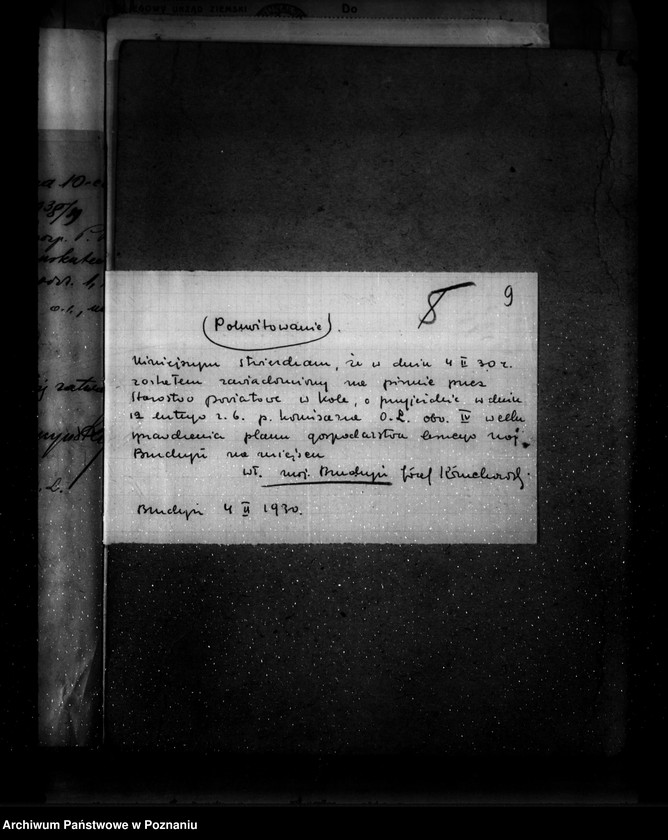 Do
a 10-
8
9
Pokwitowanie.
Niniejszym stwierdzam, że w dniu 4 II 30 r.
zostałem zawiadomiony na piśmie przez
Starostwo Powiatowe w Kole, o przyjeździe w dniu
12 lutego r. b. p. komisarza O.L. obw. IV w celu
sprawdzenia planu gospodarstwa leśnego maj.
Brudzyń na miejscu
wł. maj. Brudzyń Józef
Brudzyń 4 II 1930.
Archiwum Państwowe w Poznaniu